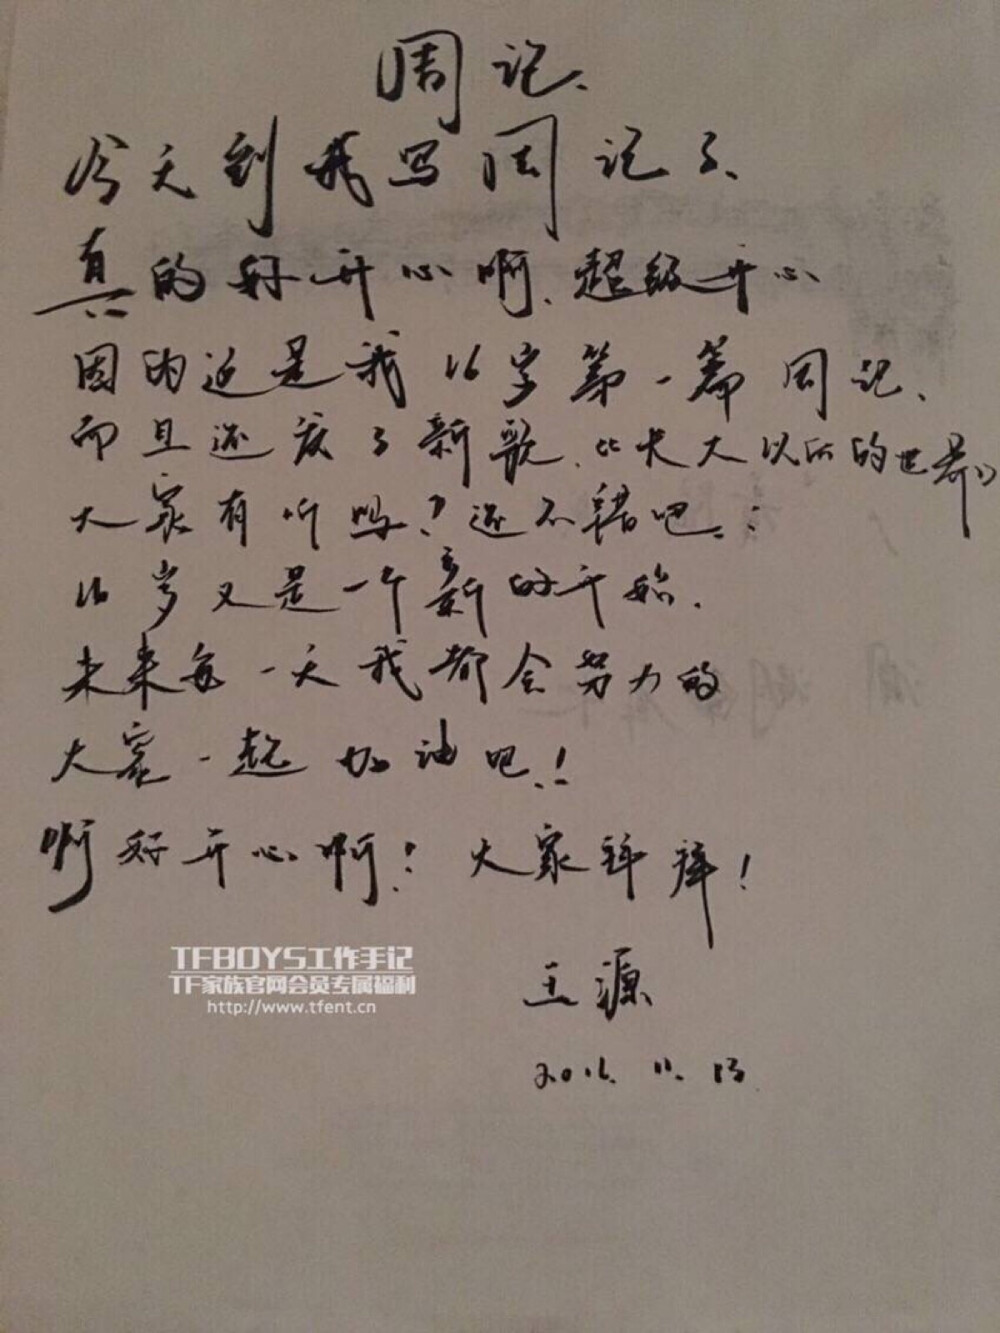 周记、
今天到我写周记了、
真的好开心啊、超级开心
因为这是我16岁第一篇周记、
而且还发了新歌、比大大以后的世界》
大家有听吗？还不错吧、：
16岁又是一个新的开始、
未来每一天我都会努力的
大家一起加油吧、！
啊好开心啊！大家拜拜！
TFBOYS工作手记
TF家族官网会员专属福利
http://www.tfent.cn
王源
2016. 11. 13